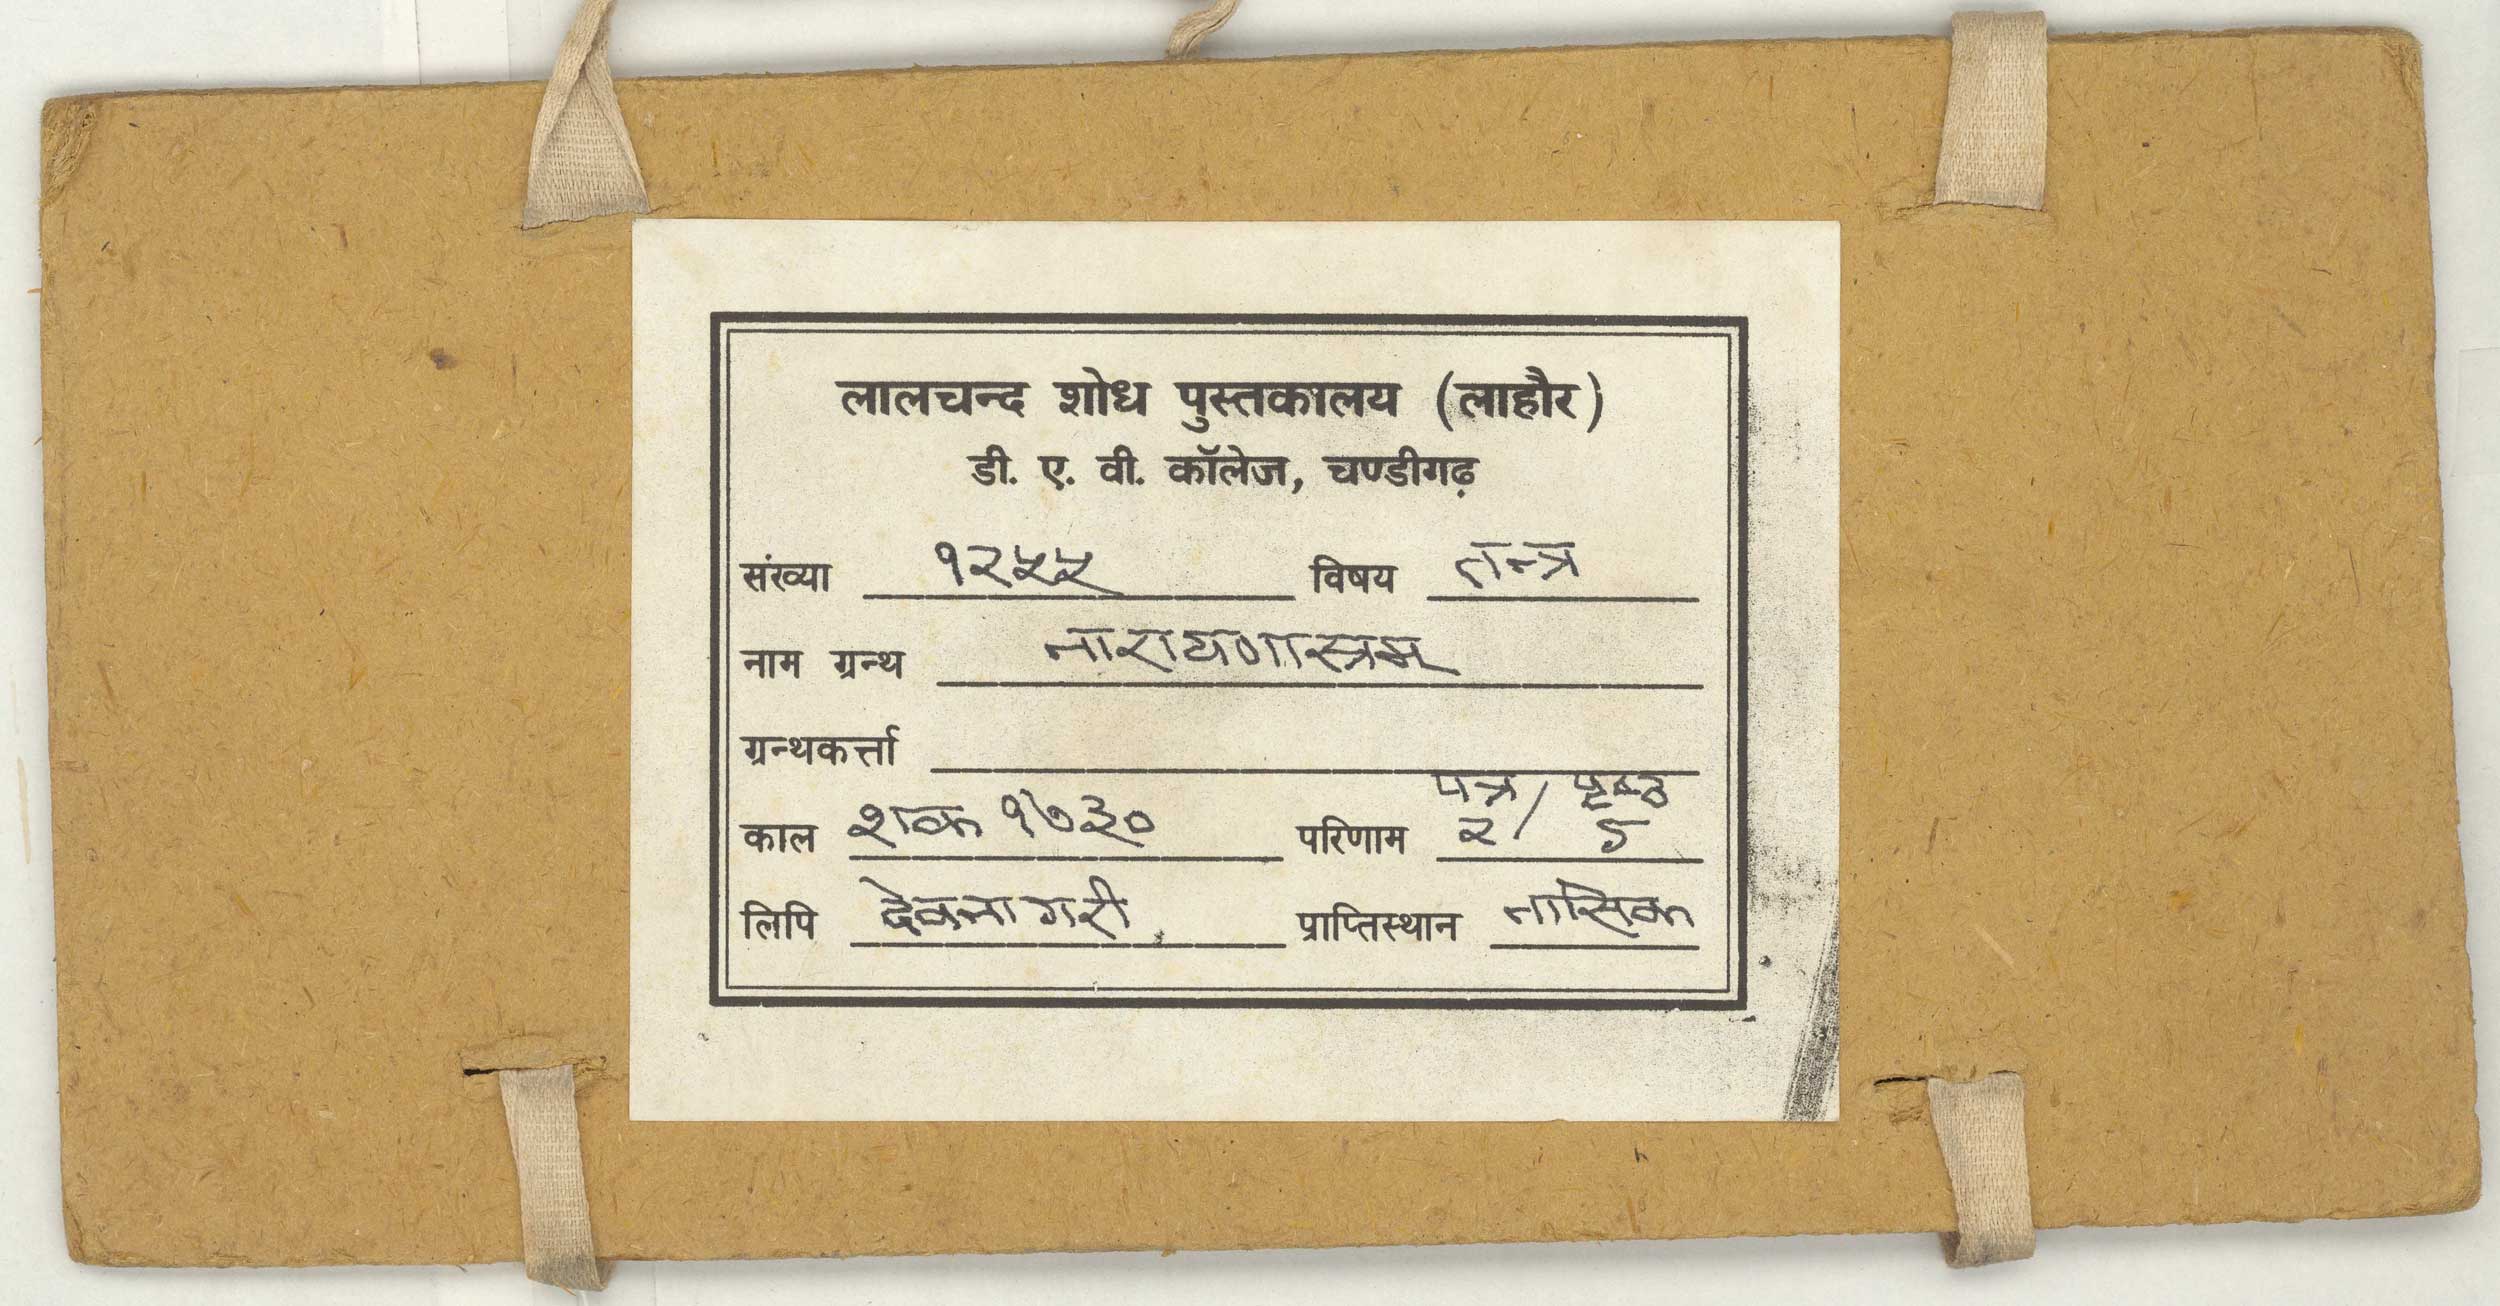 लालचन्द शोध पुस्तकालय (लाहौर)
डी. ए. वी. कॉलेज, चण्डीगढ़
संख्या १२५५ विषय तन्त्र
नाम ग्रन्थ नारायणास्त्रम्
ग्रन्थकर्त्ता
पत्र / पृष्ठ
काल शक १७३० परिणाम २ /
लिपि देवनागरी प्राप्तिस्थान नासिक